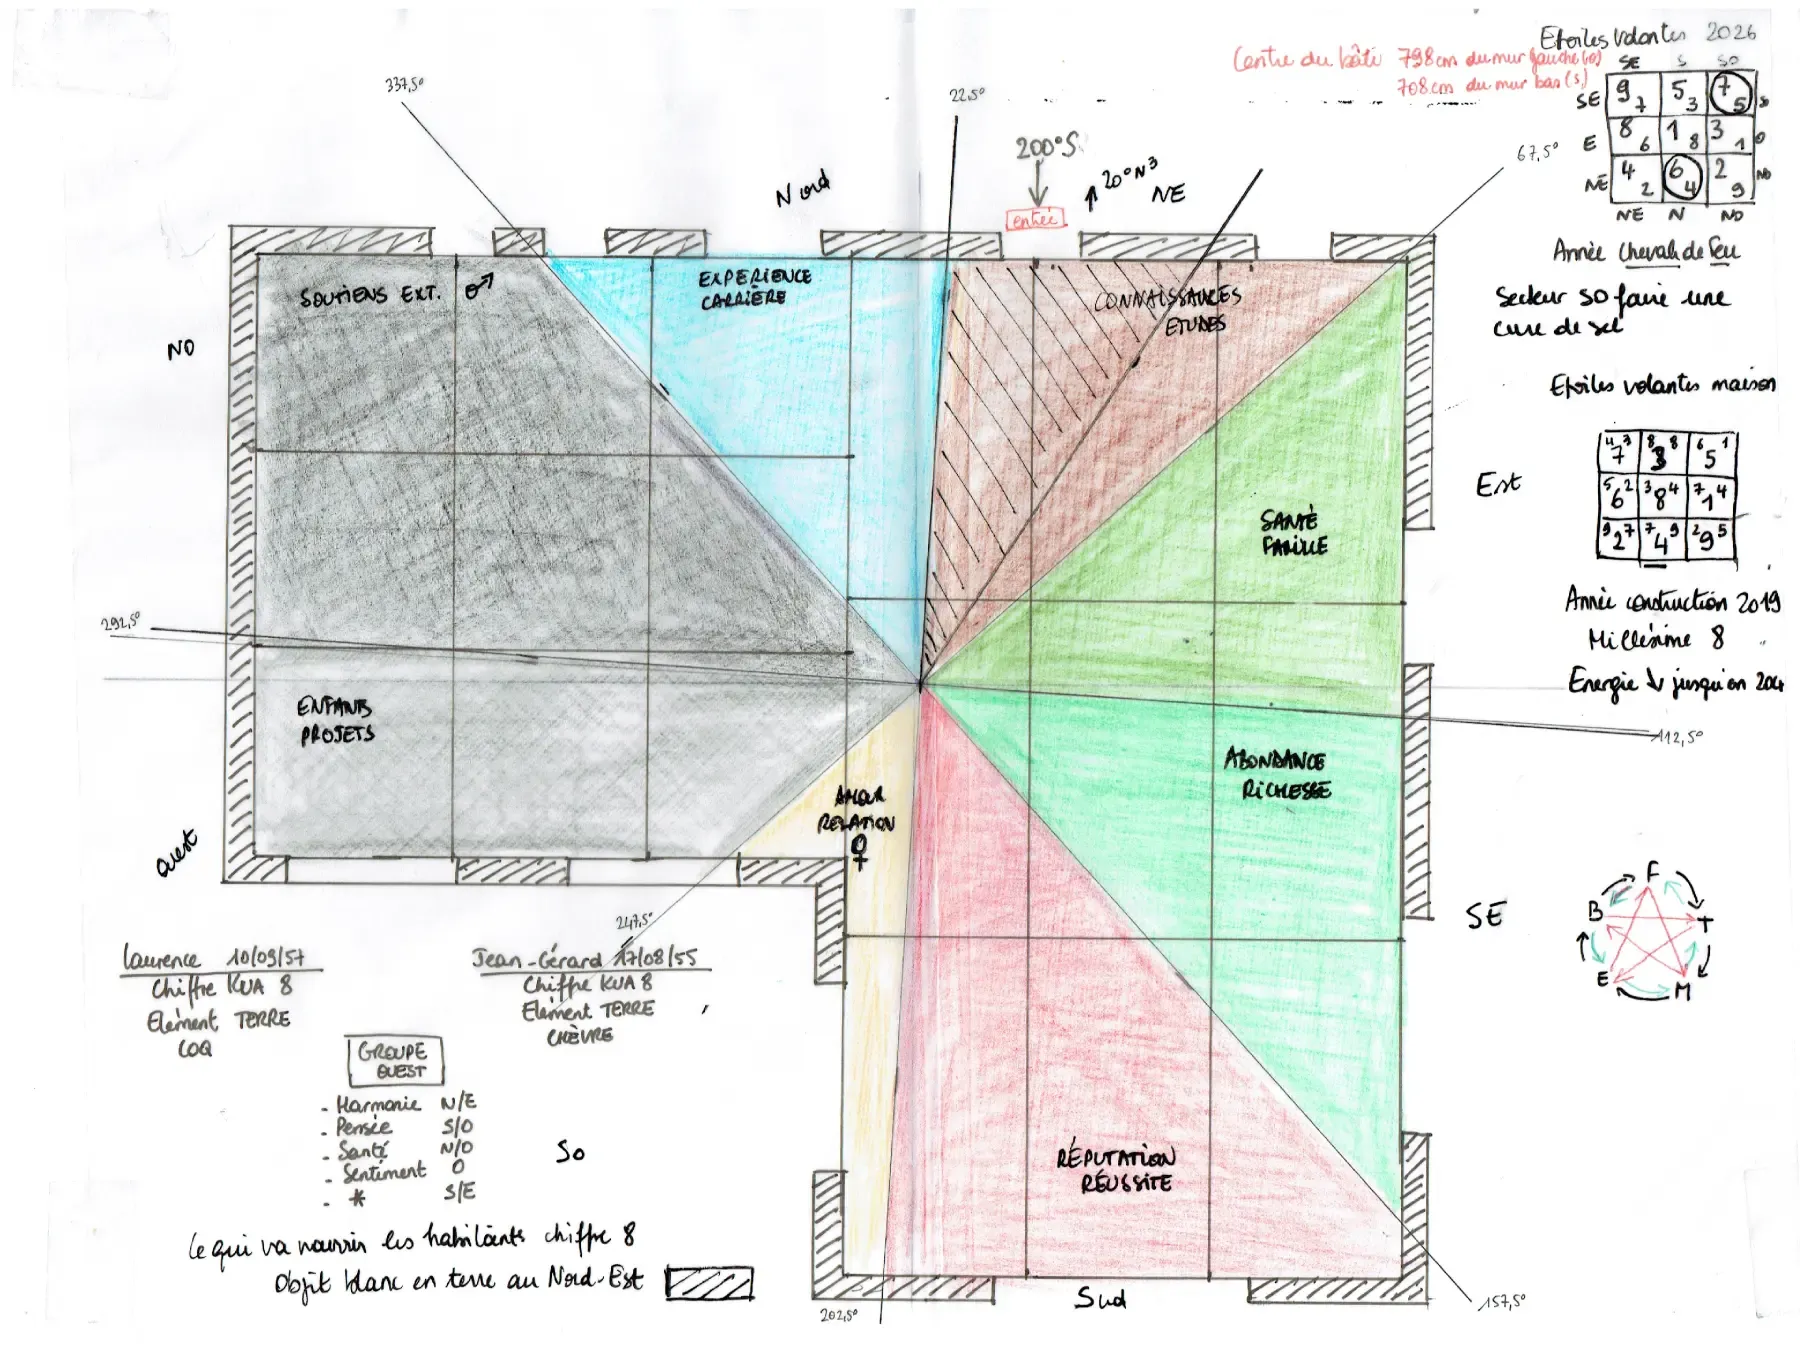 Etoiles Volantes 2026
Centre du bâti 798cm du mur gauche (o)
708cm du mur bas (s)
SE S SO
SE 9 7 5 3 7 5 SO
E 8 6 1 8 3 1 O
NE 4 2 6 4 2 9 NO
NE N NO
Année Cheval de Feu
Secteur SO faire une
cure de sel
Etoiles volantes maison
4 3 7 8 8 3 6 1 5
5 2 6 3 4 8 7 4 1
9 7 2 7 9 4 2 5 9
Année construction 2019
Millésime 8
Energie ↓ jusqu'en
337,5°
22,5°
67,5°
200°S
20°N3
Nord
NE
entrée
SOUTIENS EXT. ♂
EXPERIENCE
CARRIÈRE
CONNAISSANCES
ETUDES
NO
Est
SANTÉ
FAMILLE
292,5°
112,5°
ENFANTS
PROJETS
ABONDANCE
RICHESSE
AMOUR
RELATION
♀
Ouest
SE
F
B T
E M
247,5°
Laurence 10/09/57
Chiffre KUA 8
Elément TERRE
COQ
Jean-Gérard 17/08/55
Chiffre KUA 8
Elément TERRE
CHÈVRE
GROUPE
OUEST
- Harmonie N/E
- Pensée S/O
- Santé N/O
- Sentiment O
- * S/E
SO
RÉPUTATION
RÉUSSITE
Ce qui va nourrir les habitants chiffre 8
Objet blanc en terre au Nord-Est
Sud
202,5°
157,5°